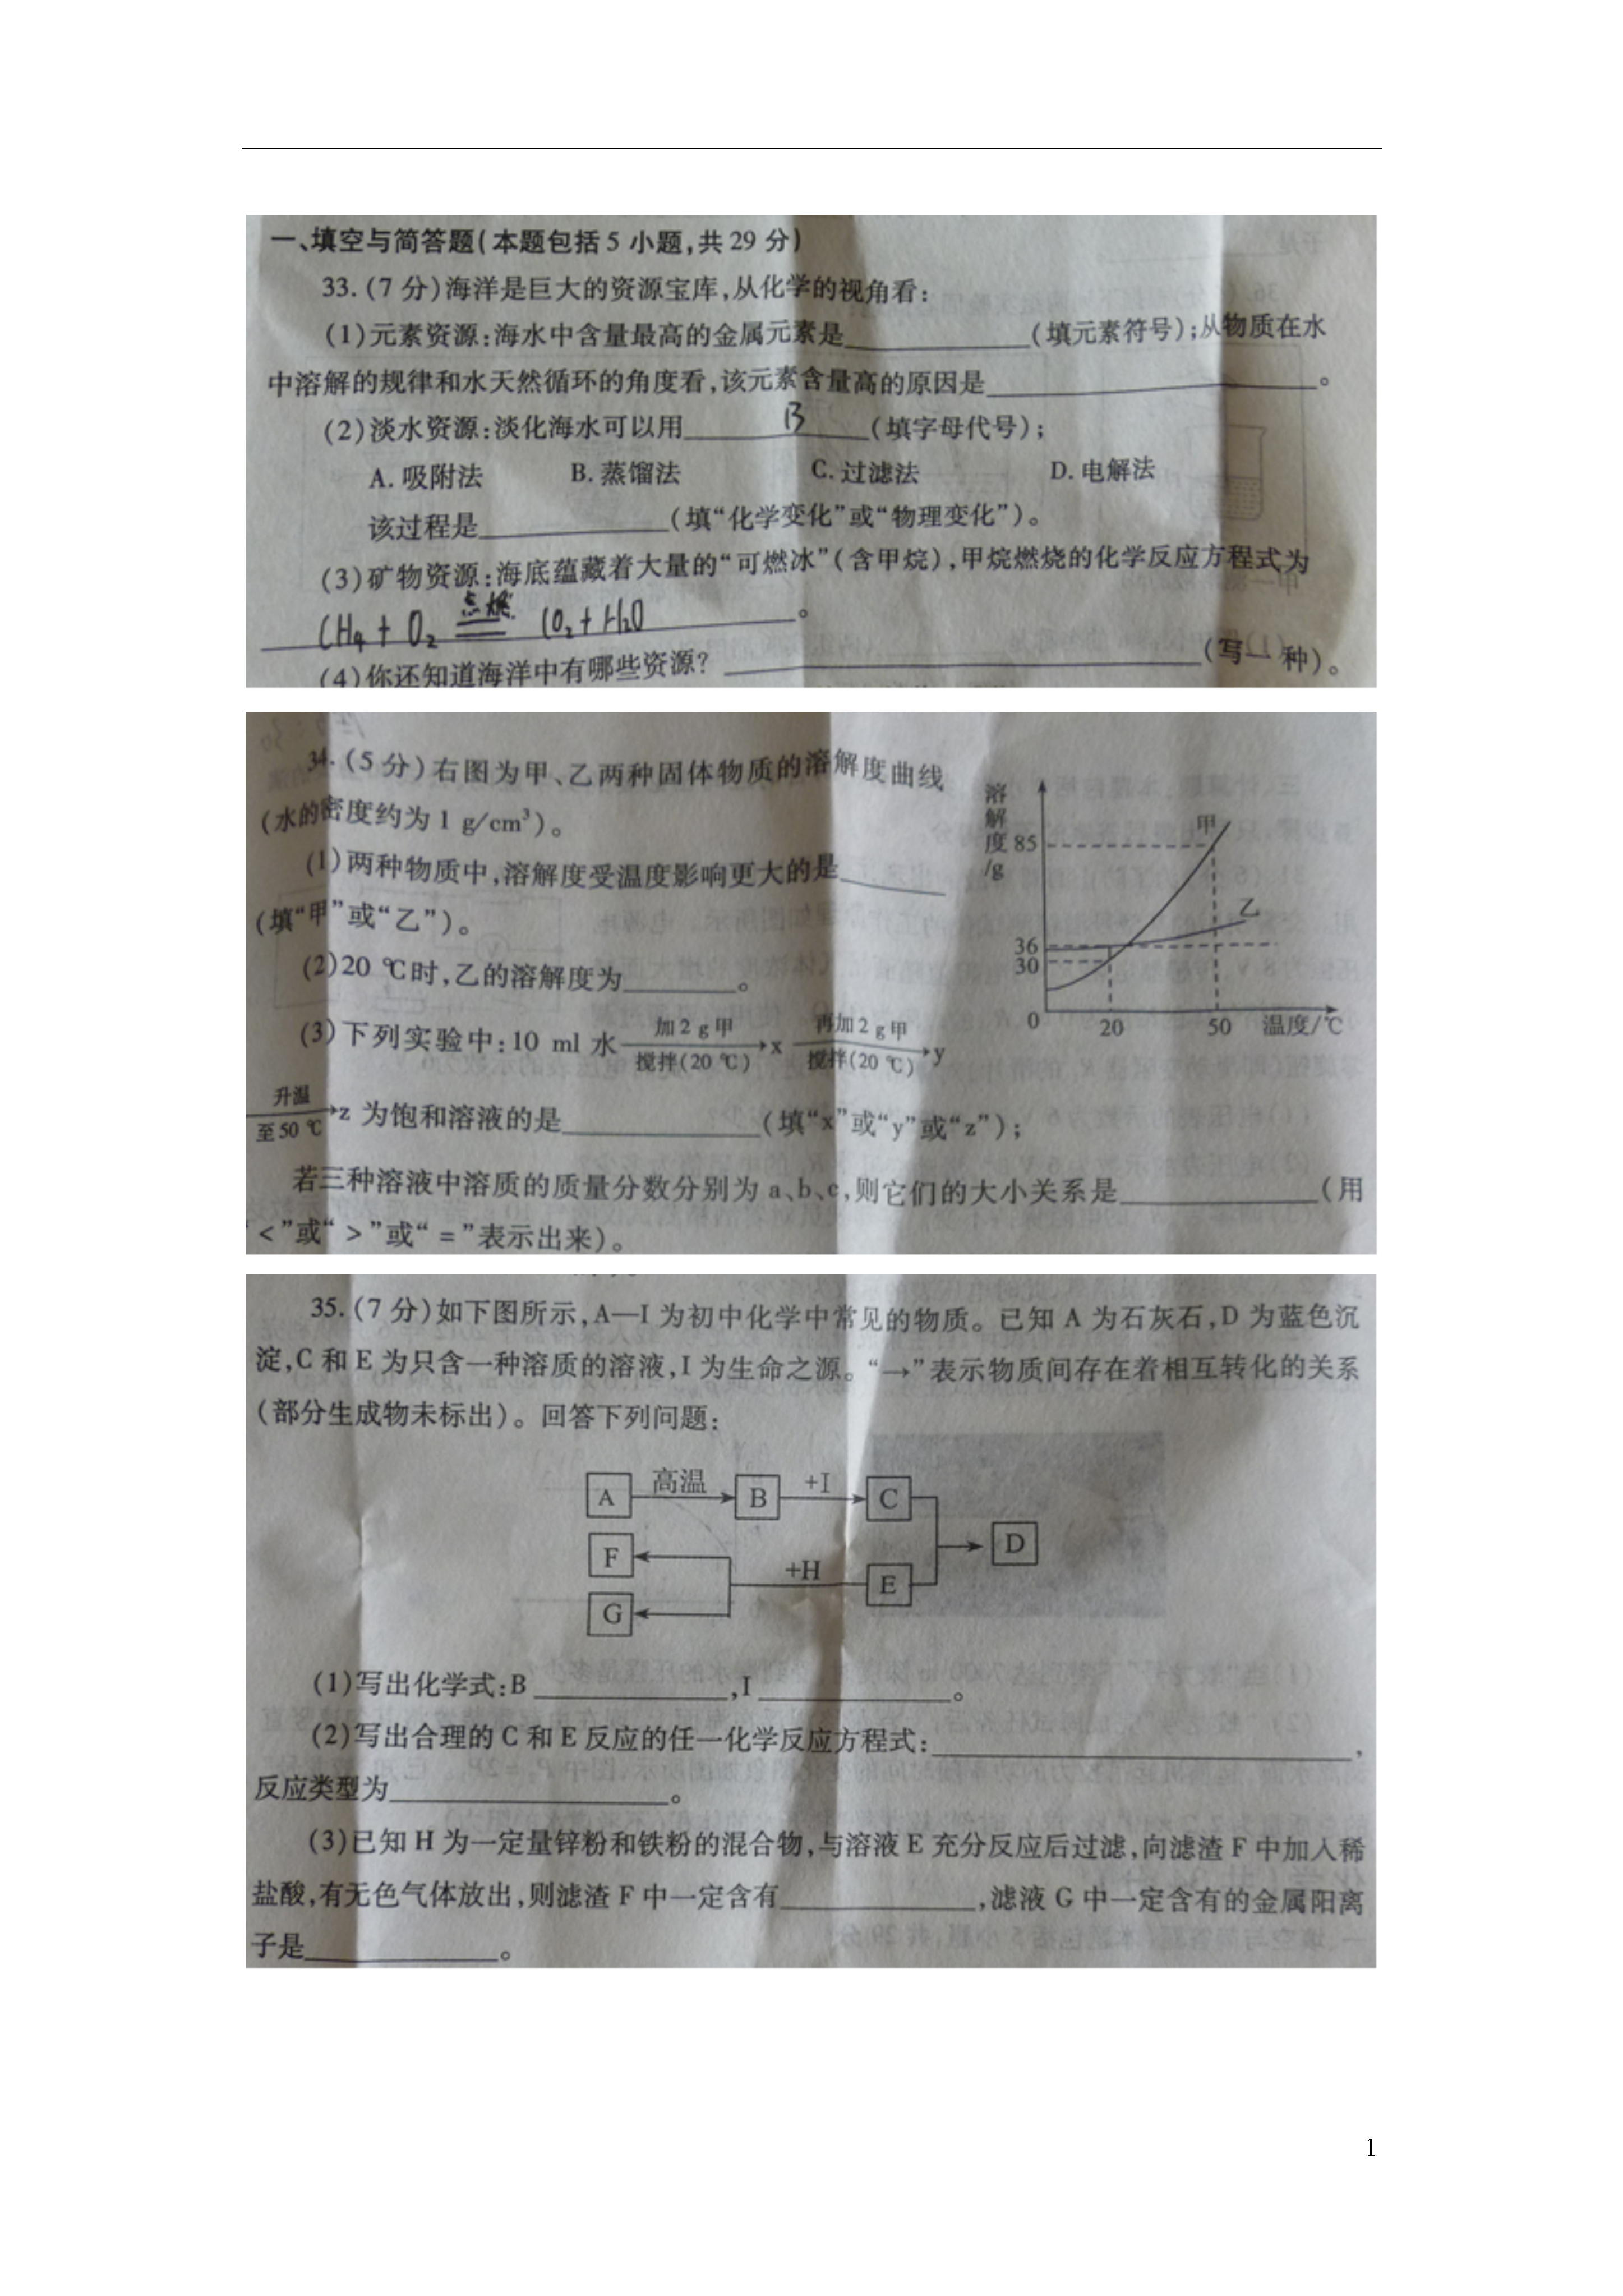 一、填空与简答题(本题包括5小题,共29分)
33.(7分)海洋是巨大的资源宝库,从化学的视角看:
(1)元素资源:海水中含量最高的金属元素是____(填元素符号);从物质在水
中溶解的规律和水天然循环的角度看,该元素含量高的原因是____。
(2)淡水资源:淡化海水可以用 B (填字母代号);
A.吸附法 B.蒸馏法 C.过滤法 D.电解法
该过程是____(填“化学变化”或“物理变化”)。
(3)矿物资源:海底蕴藏着大量的“可燃冰”(含甲烷),甲烷燃烧的化学反应方程式为
CH4 + O2 点燃 CO2 + H2O 。
(4)你还知道海洋中有哪些资源?____(写一种)。
34.(5分)右图为甲、乙两种固体物质的溶解度曲线
(水的密度约为1 g/cm³)。
(1)两种物质中,溶解度受温度影响更大的是____
(填“甲”或“乙”)。
(2)20 ℃时,乙的溶解度为____。
(3)下列实验中:10 ml 水 加2 g甲 搅拌(20 ℃) x 再加2 g甲 搅拌(20 ℃) y
升温 至50 ℃ z 为饱和溶液的是____(填“x”或“y”或“z”);
若三种溶液中溶质的质量分数分别为a、b、c,则它们的大小关系是____(用
“<”或“>”或“=”表示出来)。
溶解度/g
85
36
30
0
20
50
温度/℃
甲
乙
35.(7分)如下图所示,A—I为初中化学中常见的物质。已知A为石灰石,D为蓝色沉
淀,C和E为只含一种溶质的溶液,I为生命之源。“→”表示物质间存在着相互转化的关系
(部分生成物未标出)。回答下列问题:
A 高温 B +I C
F
D
+H E
G
(1)写出化学式:B____,I____。
(2)写出合理的C和E反应的任一化学反应方程式:____,
反应类型为____。
(3)已知H为一定量锌粉和铁粉的混合物,与溶液E充分反应后过滤,向滤渣F中加入稀
盐酸,有无色气体放出,则滤渣F中一定含有____,滤液G中一定含有的金属阳离
子是____。
1